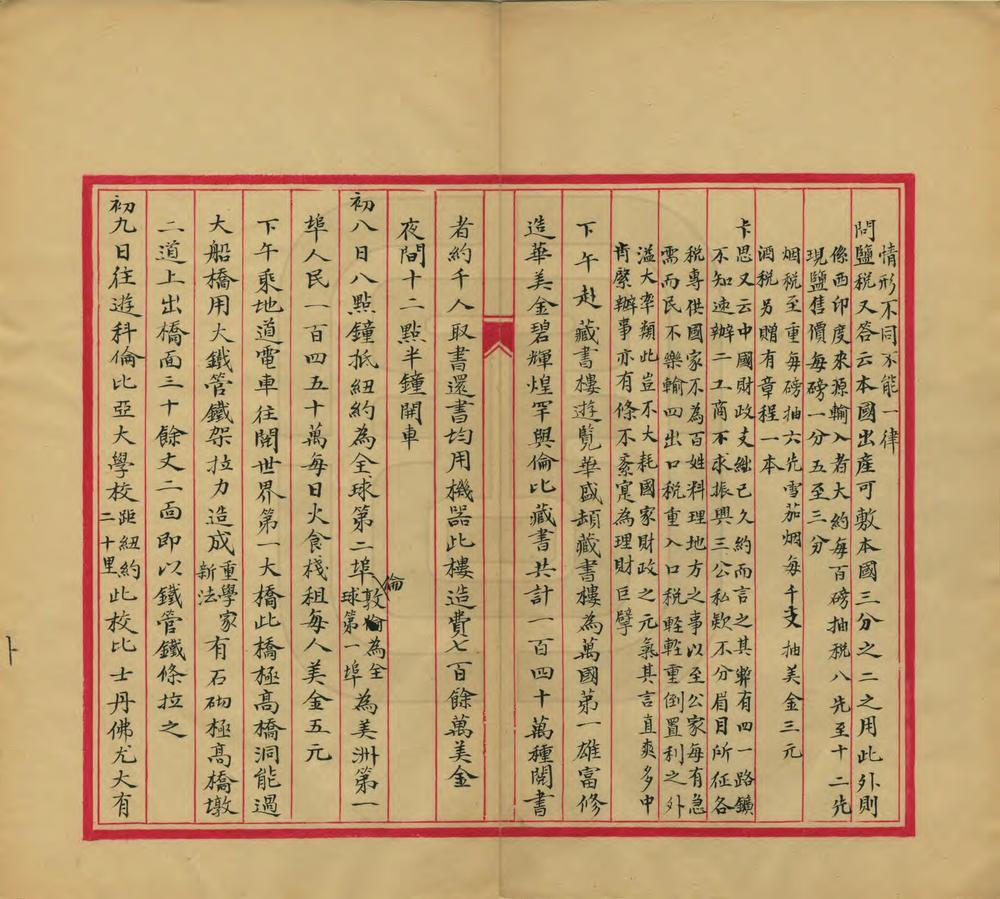 情形不同不能一律
問鹽稅又答云本國出產可敷本國三分之二之用此外則
係西印度來源輸入者大約每百磅抽稅八先至十二先
現鹽售價每磅一分五至三分
烟稅至重每磅抽六先雪茄烟每千支抽美金三元
酒稅另贈有章程一本
卡思又云中國財政支絀已久約而言之其弊有四一路鑛
不知速辦二工商不求振興三公私欵不分眉目所征各
稅專供國家不為百姓料理地方之事以至公家每有急
需而民不樂輸四出口稅重入口稅輕輕重倒置利之外
溢大率類此豈不大耗國家財政之元氣其言直爽多中
肯綮辦事亦有條不紊寔為理財巨擘
下午赴藏書樓遊覽華盛頓藏書樓為萬國第一雄富修
造華美金碧輝煌罕與倫比藏書共計一百四十萬種閱書
者約千人取書還書均用機器此樓造費七百餘萬美金
夜間十二點半鐘開車
初八日八點鐘抵紐約為全球第二埠敦倫為全球第一埠為美洲第一
埠人民一百四五十萬每日火食棧租每人美金五元
下午乘地道電車往閱世界第一大橋此橋極高橋洞能過
大船橋用大鐵管鐵架拉力造成重學家新法有石砌極高橋墩
二道上出橋面三十餘丈二面即以鐵管鐵條拉之
初九日往遊科倫比亞大學校距紐約二十里此校比士丹佛尤大有